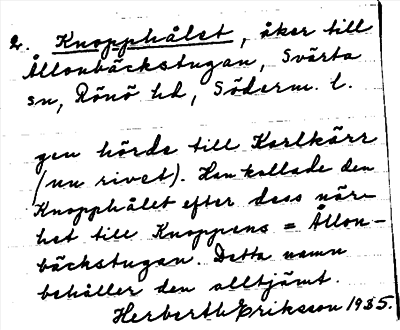 2. Knopphålet, åker till
Ållonbäckstugan, Svärta
sn, Rönö hd, Söderm. l.
gen hörde till Karlkärr
(nu rivet). Han kallade den
Knopphålet efter dess när-
het till Knoppens = Ållon-
bäckstugan. Detta namn
behåller den alltjämt.
Herberth Eriksson 1935.